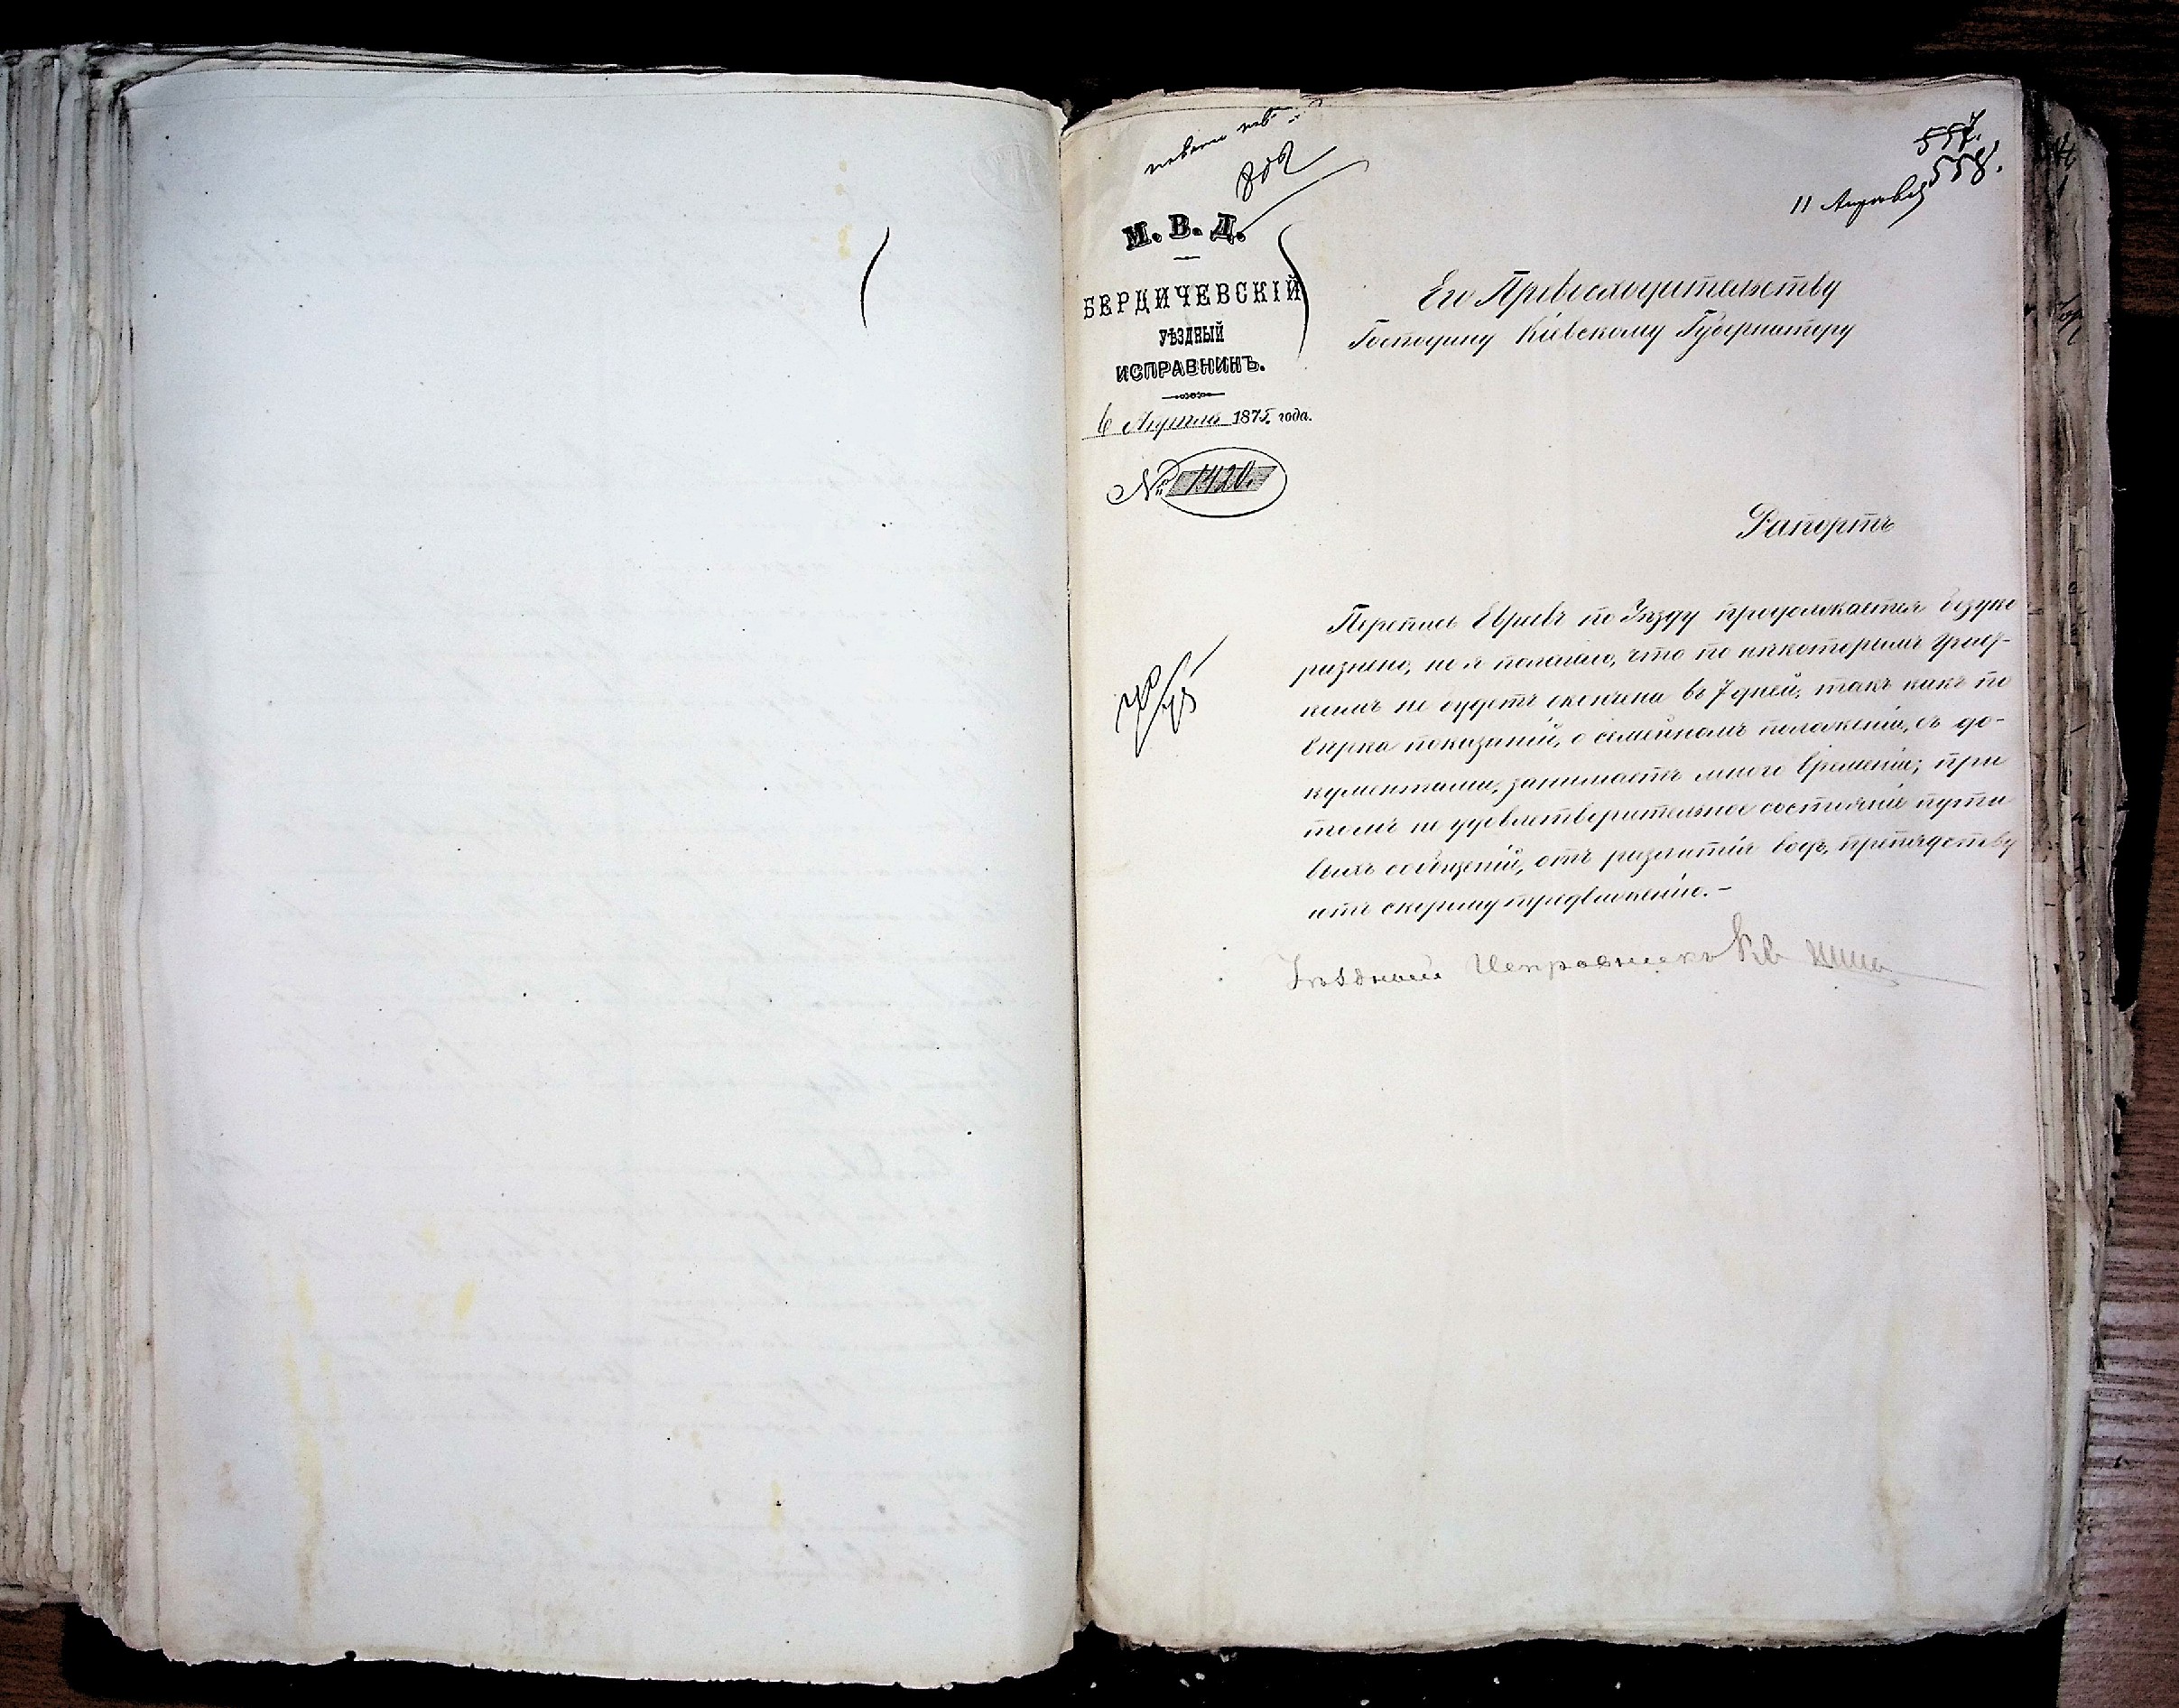 557.
558.
11 Апрѣля
М. В. Д.
БЕРДИЧЕВСКІЙ
УѢЗДНЫЙ
ИСПРАВНИКЪ.
6 Апрѣля 1875 года.
№ 1420.
Его Превосходительству
Господину Кіевскому Губернатору
Рапортъ
Перепись Евреевъ по Уѣзду продолжается безуко
ризнено, но я полагаю, что по нѣкоторымъ учас-
камъ не будетъ окончена въ 7 дней, такъ какъ по
вѣрка показаній, о семейномъ положеніи, съ до-
кументами, занимаетъ много времени; при
томъ не удовлетворительное состояніе путе
выхъ сообщеній, отъ разлитія водъ, препядству
етъ скорому предвиженію.-
Уѣздный Исправникъ